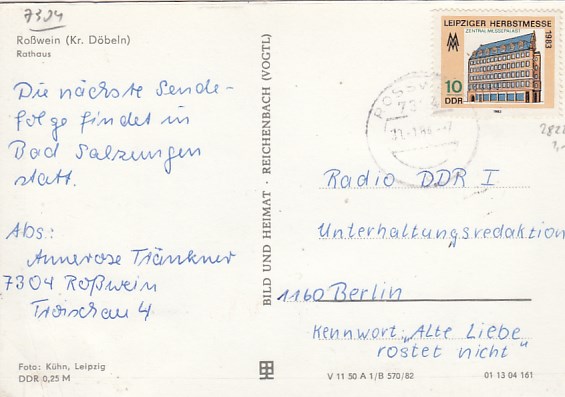 7304
Roßwein (Kr. Döbeln)
Rathaus
Die nächste Sende-
folge findet in
Bad Salzungen
statt.
Abs.:
Annerose Tränkner
7304 Roßwein
Troischau 4
Foto: Kühn, Leipzig
DDR 0,25 M
BILD UND HEIMAT · REICHENBACH (VOGTL)
LEIPZIGER HERBSTMESSE
ZENTRALMESSEPALAST
1983
10
DDR
Radio DDR I
Unterhaltungsredaktion
1160 Berlin
Kennwort: „Alte Liebe
rostet nicht"
V 11 50 A 1/B 570/82
01 13 04 161